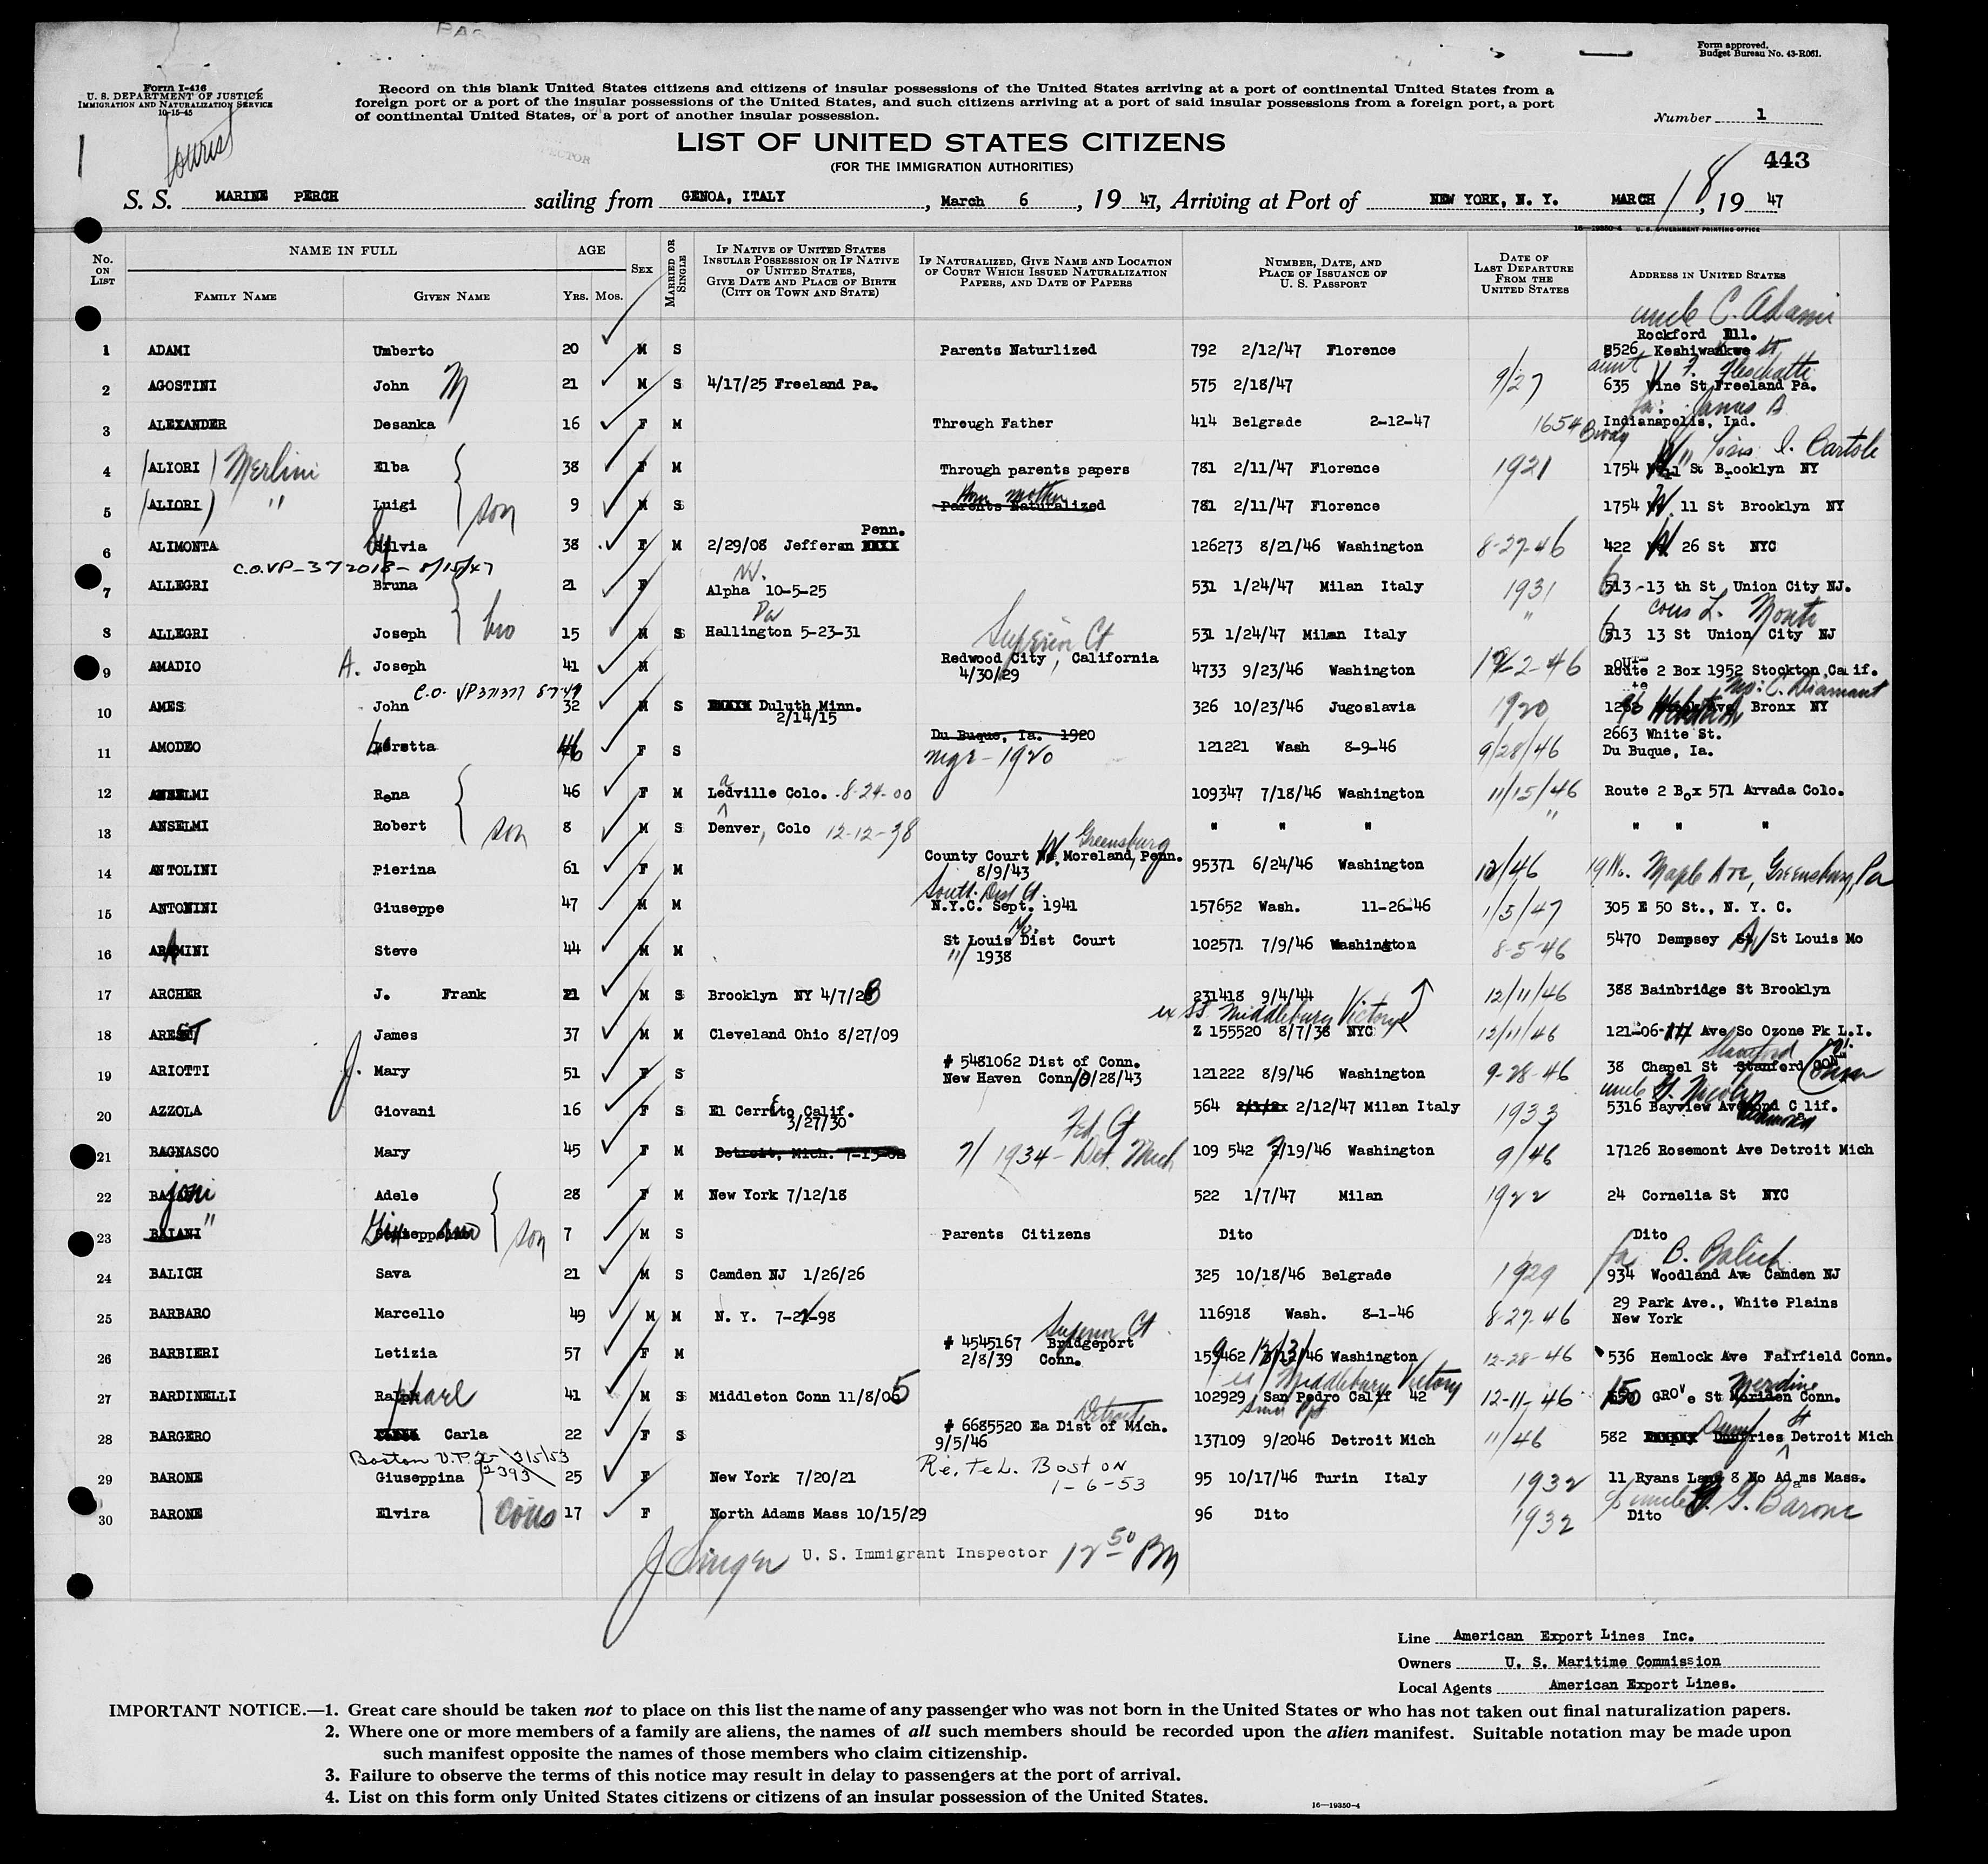 Form approved.
Budget Bureau No. 43-R061.
Form I-416
U. S. DEPARTMENT OF JUSTICE
IMMIGRATION AND NATURALIZATION SERVICE
10-15-45
Tourist
Record on this blank United States citizens and citizens of insular possessions of the United States arriving at a port of continental United States from a
foreign port or a port of the insular possessions of the United States, and such citizens arriving at a port of said insular possessions from a foreign port, a port
of continental United States, or a port of another insular possession.
Number 1
LIST OF UNITED STATES CITIZENS
(FOR THE IMMIGRATION AUTHORITIES)
443
S. S. MARINE PERCH sailing from GENOA, ITALY, March 6, 19 47, Arriving at Port of NEW YORK, N. Y. MARCH 18, 19 47
16—19350-4 U. S. GOVERNMENT PRINTING OFFICE
No. ON LIST
NAME IN FULL
FAMILY NAME
GIVEN NAME
AGE
YRS. MOS.
SEX
MARRIED OR SINGLE
IF NATIVE OF UNITED STATES INSULAR POSSESSION OR IF NATIVE OF UNITED STATES, GIVE DATE AND PLACE OF BIRTH (CITY OR TOWN AND STATE)
IF NATURALIZED, GIVE NAME AND LOCATION OF COURT WHICH ISSUED NATURALIZATION PAPERS, AND DATE OF PAPERS
NUMBER, DATE, AND PLACE OF ISSUANCE OF U. S. PASSPORT
DATE OF LAST DEPARTURE FROM THE UNITED STATES
ADDRESS IN UNITED STATES
uncle C. Adami
Rockford Ill.
1 ADAMI Umberto 20 M S Parents Naturlized 792 2/12/47 Florence 3526 Keshiwaukee St
aunt
2 AGOSTINI John M 21 M S 4/17/25 Freeland Pa. 575 2/18/47 9/27 635 Vine St Freeland Pa.
fa: James A
3 ALEXANDER Desanka 16 F M Through Father 414 Belgrade 2-12-47 Indianapolis, Ind.
1654 Bway
4 (ALIORI) Merlini Elba 38 F M Through parents papers 781 2/11/47 Florence 1921 1754 W 11 St Brooklyn NY
mother
5 (ALIORI) " Luigi son 9 M S Parents Naturalized 781 2/11/47 Florence 1754 W. 11 St Brooklyn NY
Penn.
6 ALIMONTA Sylvia 38 F M 2/29/08 Jefferan 126273 8/21/46 Washington 8-27-46 422 W 26 St NYC
C.O.VP-372018-8/15/47
7 ALLEGRI Bruna 21 F Alpha 10-5-25 531 1/24/47 Milan Italy 1931 613-13 th St Union City NJ.
Pa
cous L. Monti
8 ALLEGRI Joseph bro 15 M S Hallington 5-23-31 531 1/24/47 Milan Italy " 613 13 St Union City NJ
Superior Ct
9 AMADIO A. Joseph 41 M Redwood City, California 4/30/29 4733 9/23/46 Washington 12-2-46 Route 2 Box 1952 Stockton, Calif.
C.O. VP
10 AMES John 32 M S Duluth Minn. 2/14/15 326 10/23/46 Jugoslavia 1920 Bronx NY
11 AMODEO Loretta 46 F S Du Buque, Ia. 1920 mgr - 1920 121221 Wash 8-9-46 9/28/46 2663 White St. Du Buque, Ia.
12 ANSELMI Rena 46 F M Leadville Colo. 8-24-00 109347 7/18/46 Washington 11/15/46 Route 2 Box 571 Arvada Colo.
13 ANSELMI Robert son 8 M S Denver, Colo 12-12-38 " " " " " " "
Greensburg
14 ANTOLINI Pierina 61 F M County Court W. Moreland, Penn. 8/9/43 95371 6/24/46 Washington 12/46 19 N. Maple Ave, Greensburg, Pa
South. Dist Ct.
15 ANTONINI Giuseppe 47 M M N.Y.C. Sept. 1941 157652 Wash. 11-26-46 1/5/47 305 E 50 St., N. Y. C.
Mo.
16 ARAMINI Steve 44 M M St Louis Dist Court "/ 1938 102571 7/9/46 Washington 8-5-46 5470 Dempsey Av St Louis Mo
17 ARCHER J. Frank 21 M S Brooklyn NY 4/7/28 231418 9/4/44 12/11/46 388 Bainbridge St Brooklyn
ex SS Middlebury Victory
18 AREST James 37 M M Cleveland Ohio 8/27/09 Z 155520 8/7/38 NYC 12/11/46 121-06-111 Ave So Ozone Pk L.I.
19 ARIOTTI J. Mary 51 F S # 5481062 Dist of Conn. New Haven Conn 10/28/43 121222 8/9/46 Washington 9-28-46 38 Chapel St Stanford Conn
uncle
20 AZZOLA Giovani 16 F S El Cerrito Calif. 3/27/30 564 2/12/47 Milan Italy 1933 5316 Bayview Ave Richmond Calif.
Fed. Ct
21 BAGNASCO Mary 45 F M Detroit, Mich. 7/1934 - Det. Mich 109 542 7/19/46 Washington 9/46 17126 Rosemont Ave Detroit Mich
22 Bajoni Adele 28 F M New York 7/12/18 522 1/7/47 Milan 1922 24 Cornelia St NYC
23 BAIANI " son 7 M S Parents Citizens Dito Dito
fa B. Balich
24 BALICH Sava 21 M S Camden NJ 1/26/26 325 10/18/46 Belgrade 1929 934 Woodland Ave Camden NJ
25 BARBARO Marcello 49 M M N. Y. 7-2-98 116918 Wash. 8-1-46 8-27-46 29 Park Ave., White Plains New York
Superior Ct
26 BARBIERI Letizia 57 F M # 4545167 Bridgeport 2/8/39 Conn. 159462 /46 Washington 12-28-46 536 Hemlock Ave Fairfield Conn.
ex Middlebury Victory
27 BARDINELLI Raphael 41 M S Middleton Conn 11/8/05 102929 San Pedro Calif 42 12-11-46 150 GROVe St Meriden Conn.
Detroit
28 BARGERO Carla 22 F S # 6685520 Ea Dist of Mich. 9/5/46 137109 9/2046 Detroit Mich 11/46 582 Dumfries Detroit Mich
Boston V.P. 2393 3/5/53
29 BARONE Giuseppina 25 F New York 7/20/21 Re. Tel. Boston 1-6-53 95 10/17/46 Turin Italy 1932 11 Ryans Lane 8 No Adams Mass.
uncle G. Barone
30 BARONE Elvira cous 17 F North Adams Mass 10/15/29 96 Dito 1932 Dito
J Singer U. S. Immigrant Inspector 12 50 PM
Line American Export Lines Inc.
Owners U. S. Maritime Commission
Local Agents American Export Lines.
IMPORTANT NOTICE.—1. Great care should be taken not to place on this list the name of any passenger who was not born in the United States or who has not taken out final naturalization papers.
2. Where one or more members of a family are aliens, the names of all such members should be recorded upon the alien manifest. Suitable notation may be made upon
such manifest opposite the names of those members who claim citizenship.
3. Failure to observe the terms of this notice may result in delay to passengers at the port of arrival.
4. List on this form only United States citizens or citizens of an insular possession of the United States.
16—19350-4